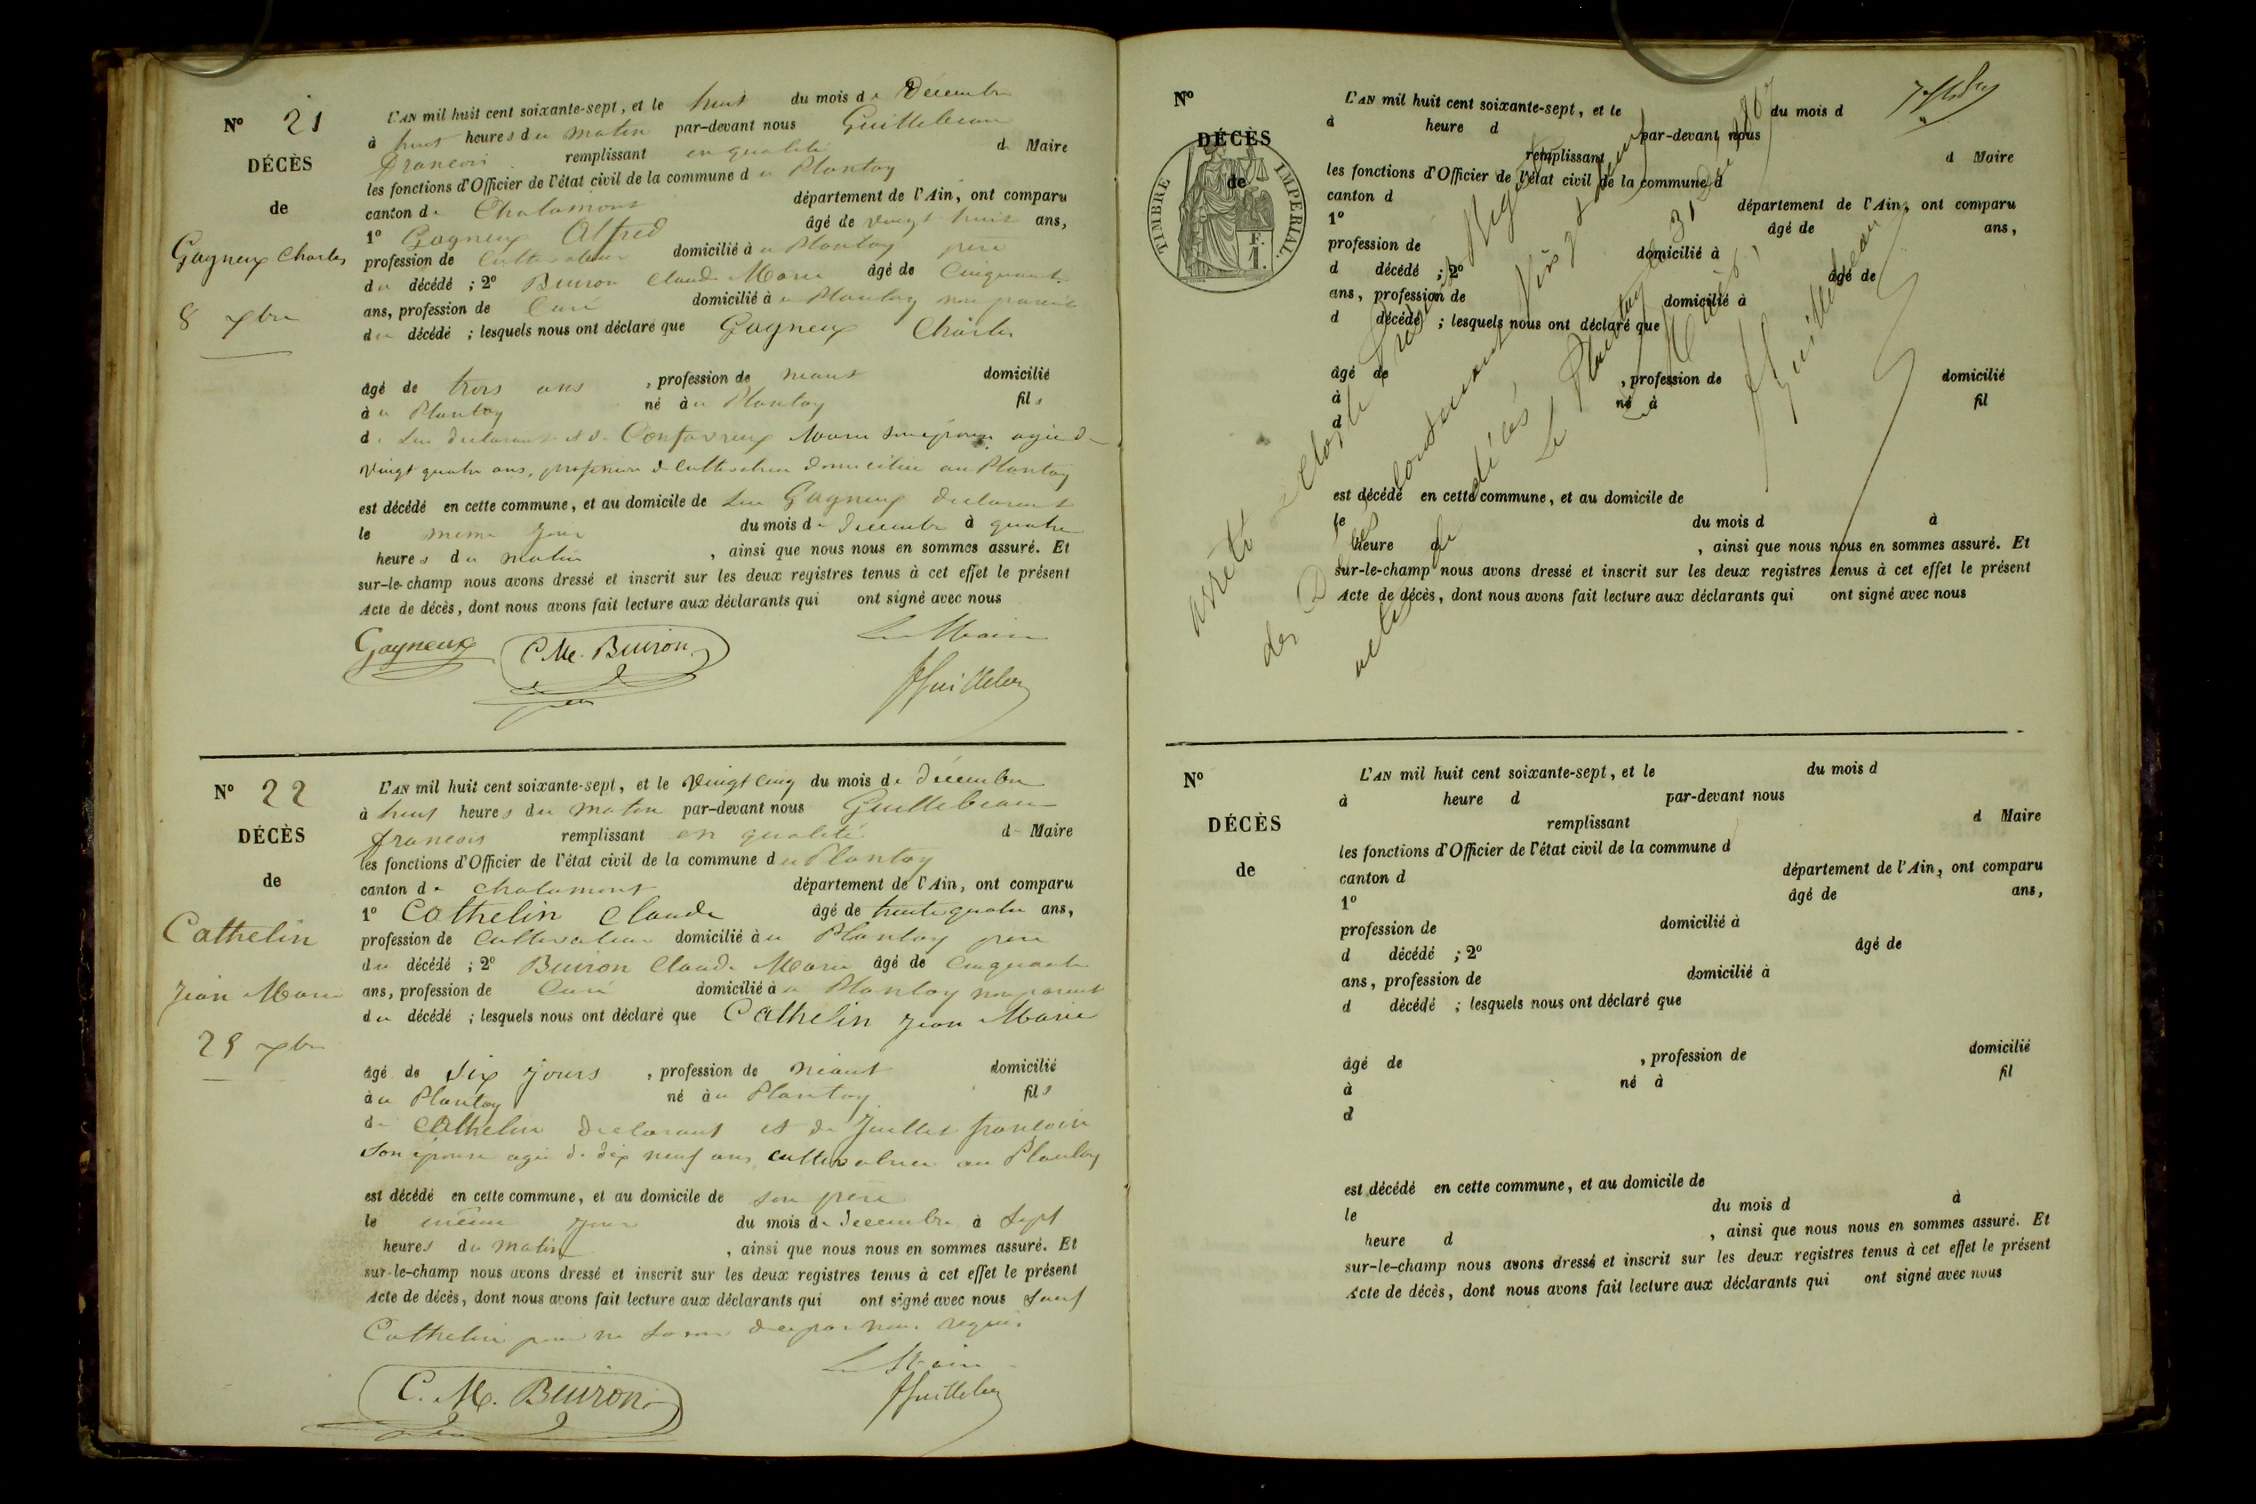 N° 21
DÉCÈS
de
Gagneux Charles
8 xbre
L'AN mil huit cent soixante-sept, et le huit du mois de Décembre
à huit heures du matin par-devant nous Guillebeau
francois remplissant en qualité de Maire
les fonctions d'Officier de l'état civil de la commune du Plantay
canton de Chalamont département de l'Ain, ont comparu
1° Gagneux Alfred âgé de vingt huit ans,
profession de Cultivateur domicilié à u Plantay père
du décédé ; 2° Buiron Claude Marie âgé de Cinquante
ans, profession de Curé domicilié à u Plantay non parent
du décédé ; lesquels nous ont déclaré que Gagneux Charles
âgé de trois ans , profession de néant domicilié
à u Plantay né à u Plantay fils
de Luc déclarant et de Confavreux Marie son épouse agée de
vingt quatre ans, profession de cultivatrice domiciliée au Plantay
est décédé en cette commune, et au domicile de Luc Gagneux declarant
le meme jour du mois de décembre à quatre
heures du matin , ainsi que nous nous en sommes assuré. Et
sur-le-champ nous avons dressé et inscrit sur les deux registres tenus à cet effet le présent
Acte de décès, dont nous avons fait lecture aux déclarants qui ont signé avec nous
Gagneux C. Me. Buiron Le Maire
Guillebeau
N° 22
DÉCÈS
de
Cathelin
Jean Marie
25 xbre
L'AN mil huit cent soixante-sept, et le vingt cinq du mois de décembre
à huit heures du matin par-devant nous Guillebeau
francois remplissant en qualité de Maire
les fonctions d'Officier de l'état civil de la commune du Plantay
canton de chalamont département de l'Ain, ont comparu
1° Cathelin Claude âgé de trente quatre ans,
profession de Cultivateur domicilié à u Plantay père
du décédé ; 2° Buiron Claude Marie âgé de Cinquante
ans, profession de Curé domicilié à u Plantay non parent
du décédé ; lesquels nous ont déclaré que Cathelin Jean Marie
âgé de six jours , profession de néant domicilié
à u Plantay né à u Plantay fils
de Cathelin declarant et de Juillet francoise
son épouse agée de dix neuf ans cultivatrice au Plantay
est décédé en cette commune, et au domicile de son père
le même jour du mois de décembre à sept
heures du matin , ainsi que nous nous en sommes assuré. Et
sur-le-champ nous avons dressé et inscrit sur les deux registres tenus à cet effet le présent
Acte de décès, dont nous avons fait lecture aux déclarants qui ont signé avec nous sauf
Cathelin pour ne savoir de ce par nous requis
Le Maire
C. M. Buiron Guillebeau
N°
DÉCÈS
de
TIMBRE IMPERIAL.
F.
1.
L'AN mil huit cent soixante-sept, et le du mois d
à heure d par-devant nous
remplissant d Maire
les fonctions d'Officier de l'état civil de la commune d
canton d département de l'Ain, ont comparu
1° âgé de ans,
profession de domicilié à
d décédé ; 2° âgé de
ans, profession de domicilié à
d décédé ; lesquels nous ont déclaré que
âgé de , profession de domicilié
à né à fil
d
est décédé en cette commune, et au domicile de
le du mois d à
heure d , ainsi que nous nous en sommes assuré. Et
sur-le-champ nous avons dressé et inscrit sur les deux registres tenus à cet effet le présent
Acte de décès, dont nous avons fait lecture aux déclarants qui ont signé avec nous
arrêté et clos le présent Registre
des Décès contenant vingt deux
actes de décès
Le Plantay le 31 Dbre 1867
Le Maire,
Guillebeau
N°
DÉCÈS
de
L'AN mil huit cent soixante-sept, et le du mois d
à heure d par-devant nous
remplissant d Maire
les fonctions d'Officier de l'état civil de la commune d
canton d département de l'Ain, ont comparu
1° âgé de ans,
profession de domicilié à
d décédé ; 2° âgé de
ans, profession de domicilié à
d décédé ; lesquels nous ont déclaré que
âgé de , profession de domicilié
à né à fil
d
est décédé en cette commune, et au domicile de
le du mois d à
heure d , ainsi que nous nous en sommes assuré. Et
sur-le-champ nous avons dressé et inscrit sur les deux registres tenus à cet effet le présent
Acte de décès, dont nous avons fait lecture aux déclarants qui ont signé avec nous